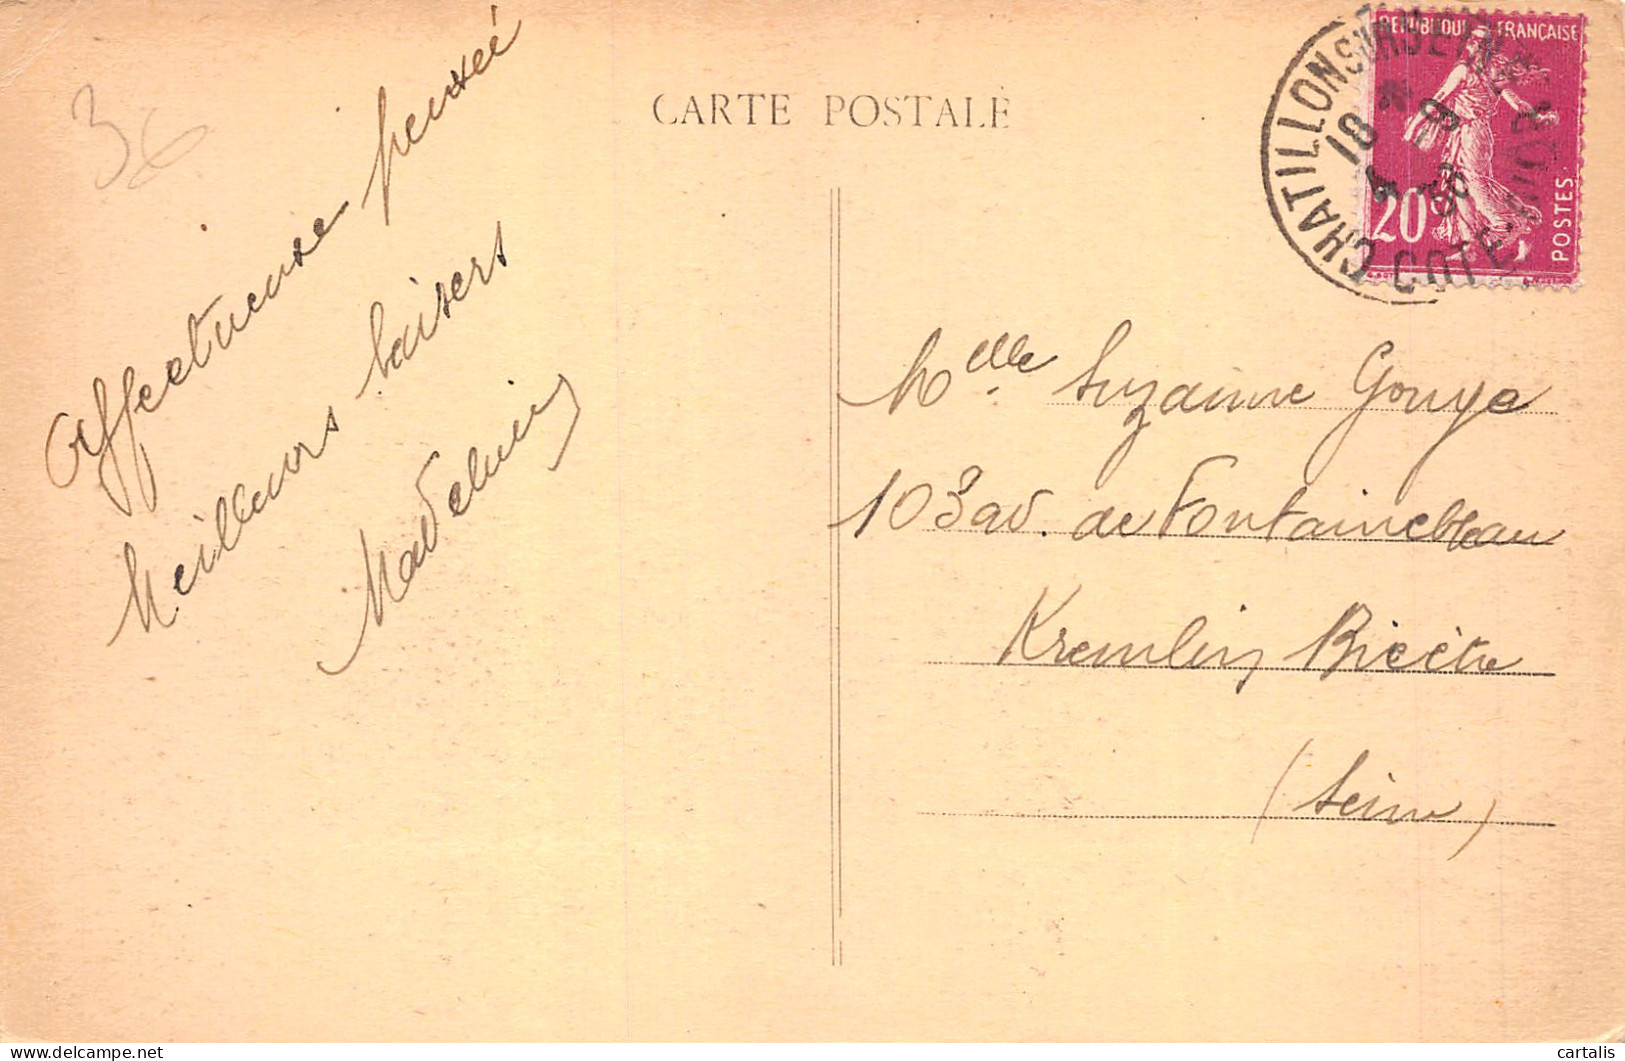 36
Affectueuse pensée
Meilleurs baisers
Madeleine
CARTE POSTALE
REPUBLIQUE FRANÇAISE
20c
POSTES
CHATILLON SUR SEINE
COTE D'OR
18
4
36
Melle Suzanne Gouye
103 av. de Fontainebleau
Kremlin Bicêtre
(Seine)
cartalis